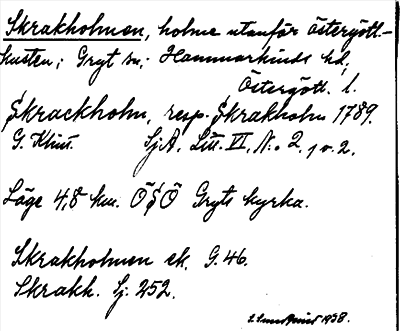 Skrakholmen, holme utanför Östergötl.-
kusten; Gryt sn; Hammarkinds hd,
Östergötl. l.
Skrackholm, resp. Skrakholm 1789.
G. Klint. Sj.A. Litt. VI, N:o 2, 1 o. 2.
Läge 4,8 km. ÖSÖ Gryts kyrka.
Skrakholmen ek. G. 46.
Skrakh. Sj. 252.
1938.